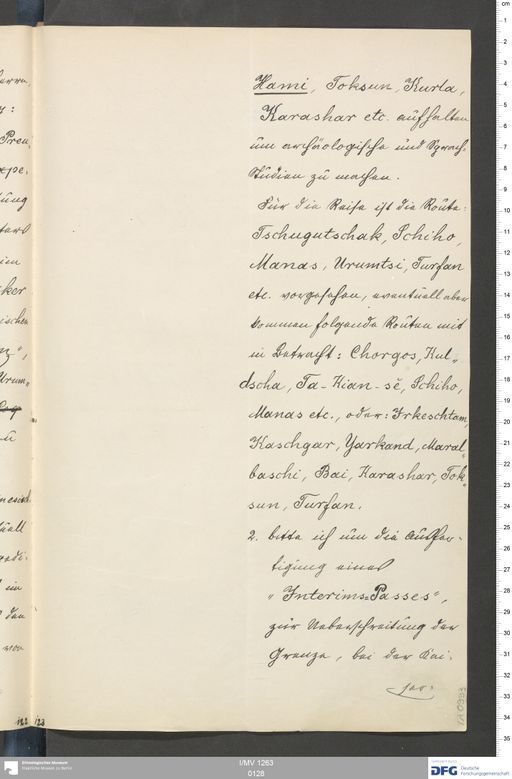 Hami, Toksun, Kurla,
Karashar etc. aufhalten
um archäologische und Sprach=
studien zu machen.
Für die Reise ist die Route:
Tschugutschak, Schiho,
Manas, Urumtsi, Turfan
etc. vorgesehen, eventuell aber
kommen folgende Routen mit
in Betracht: Chorgos, Kul„
dscha, Ta-Kian-sě, Schiho,
Manas etc., oder: Irkeschtam,
Kaschgar, Yarkand, Maral„
baschi, Bai, Karashar, Tok„
sun, Turfan.
2. bitte ich um die Ausfer-
tigung eines
„Interims=Passes",
zur Ueberschreitung der
Grenze, bei der Kai-
ser=
122 123
I/MV 1263
0128
Ethnologisches Museum
Staatliche Museen zu Berlin
DFG Deutsche
Forschungsgemeinschaft
cm
1
2
3
4
5
6
7
8
9
10
11
12
13
14
15
16
17
18
19
20
21
22
23
24
25
26
27
28
29
30
31
32
33
34
35